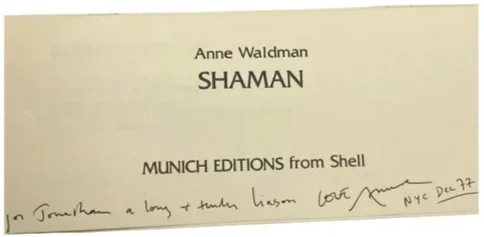 Anne Waldman
SHAMAN
MUNICH EDITIONS from Shell
for Jonathan a long + tender liason LOVE Anne
NYC Dec 77